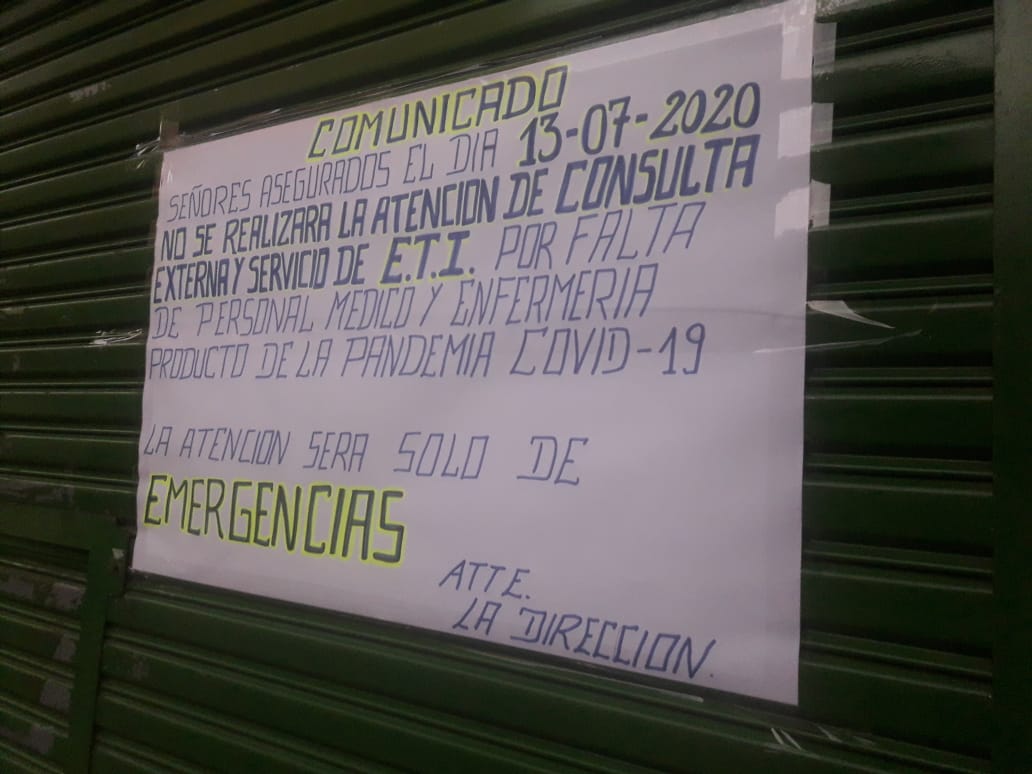 COMUNICADO
SEÑORES ASEGURADOS EL DIA 13-07-2020
NO SE REALIZARA LA ATENCION DE CONSULTA
EXTERNA Y SERVICIO DE E.T.I. POR FALTA
DE PERSONAL MEDICO Y ENFERMERIA
PRODUCTO DE LA PANDEMIA COVID-19
LA ATENCION SERA SOLO DE
EMERGENCIAS
ATTE.
LA DIRECCION.